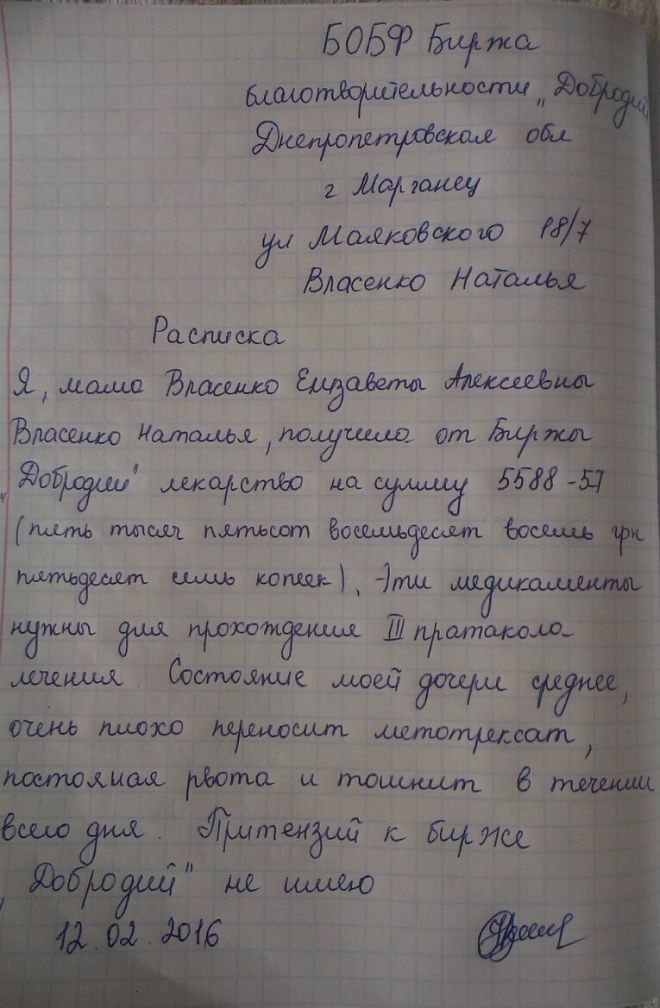 БОБФ Биржа
благотворительности „Добродий
Днепропетровская обл
г Марганец
ул Маяковского 18/7
Власенко Наталья
Расписка
Я, мама Власенко Елизаветы Алексеевны
Власенко Наталья, получила от Биржы
„Добродий" лекарство на сумму 5588-57
(пять тысяч пятьсот восемьдесят восемь грн
пятьдесят семь копеек). Эти медикаменты
нужны для прохождения III пратакола
лечения. Состояние моей дочери среднее,
очень плохо переносит метотрексат,
постояная рвота и тошнит в течении
всего дня. Притензий к бирже
„Добродий" не имею
12.02.2016